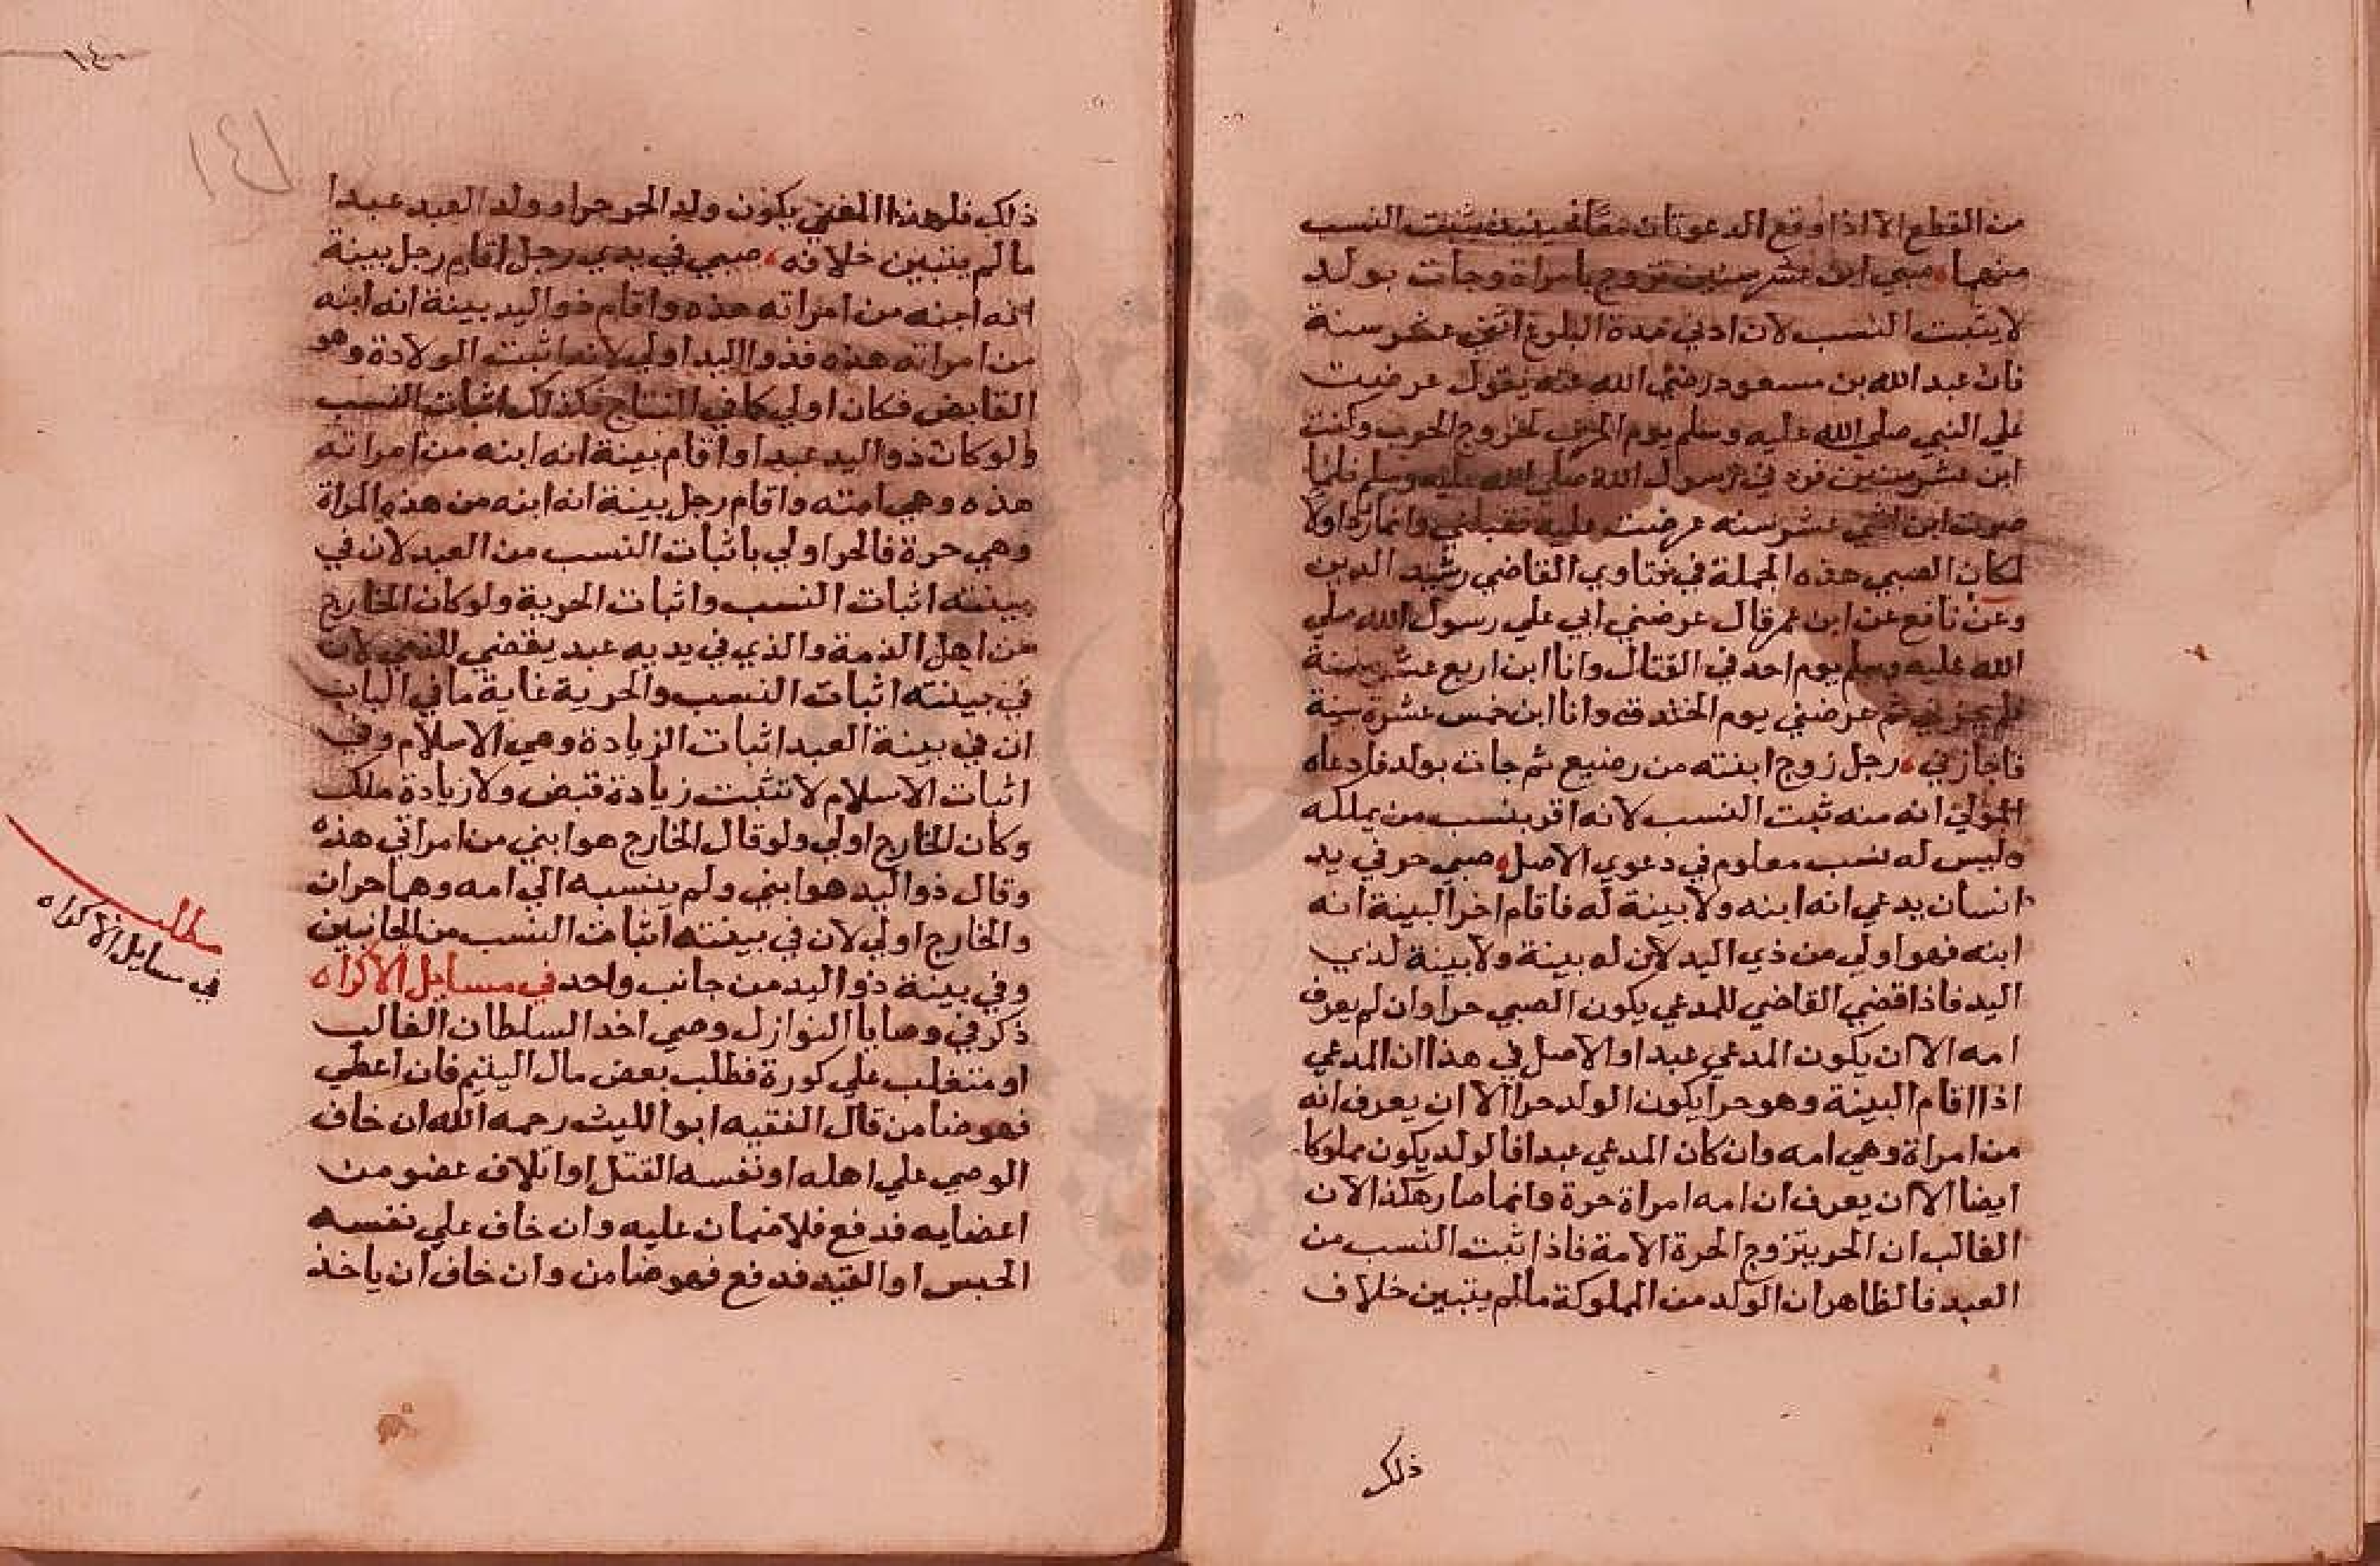 من القطع الا اذا وقع الدعوتان معا فحينئذ يثبت النسب
منهما صبي ابن عشر سنين تزوج بامراة وجات بولد
لا يثبت النسب لان ادني مدة البلوغ اثني عشر سنة
فان عبد الله بن مسعود رضي الله عنه يقول عرضت
علي النبي صلي الله عليه وسلم يوم لخروج الحرب وكنت
ابن عشر سنين فردني رسول الله صلي الله عليه وسلم فلما
صرت ابن اثني عشر سنه عرضت عليه فقبلني وانما رد اولا
لمكان الصبي هذه الجملة في فتاوي القاضي رشيد الدين
وعن نافع عن ابن عمر قال عرضني ابي علي رسول الله صلي
الله عليه وسلم يوم احد في القتال وانا ابن اربع عشر سنة
فلم يجزني ثم عرضني يوم الخندق وانا ابن خمس عشرة سنة
فاجازني رجل زوج ابنته من رضيع ثم جات بولد فادعاه
المولي انه منه ثبت النسب لانه اقر بنسب من يملكه
وليس له نسب معلوم في دعوي الاصل صبي حر في يد
انسان يدعي انه ابنه ولا بينة له فاقام اخر البينة انه
ابنه فهو اولي من ذي اليد لان له بينة ولا بينة لذي
اليد فاذا قضي القاضي للمدعي يكون الصبي حرا وان لم يعرف
امه الا ان يكون المدعي عبدا والاصل في هذا ان المدعي
اذا اقام البينة وهو حر ايكون الولد حرا الا ان يعرف انه
من امراة وهي امه وان كان المدعي عبدا فالولد يكون مملوكا
ايضا الا ان يعرف ان امه امراة حرة وانما صار هكذا لان
الغالب ان الحر يتزوج الحرة الامة فاذا ثبت النسب من
العبد فالظاهر ان الولد من المملوكة مالم يتبين خلاف
ذلك
١٤٠
١٤١
ذلك فلهذا المعني يكون ولد الحر حرا وولد العبد عبدا
مالم يتبين خلافه صبي في يدي رجل اقام رجل بينة
انه ابنه من امراته هذه واقام ذو اليد بينة انه ابنه
من امراته هذه فذو اليد اولي لانه اثبت الولادة وهو
القابض فكان اولي كما في النتاج فكذلك اثبات النسب
ولو كان ذو اليد عبدا واقام بينة انه ابنه من امراته
هذه وهي امته واقام رجل بينة انه ابنه من هذه المراة
وهي حرة فالحر اولي باثبات النسب من العبد لان في
بينته اثبات النسب واثبات الحرية ولو كان الخارج
من اهل الذمة والذي في يديه عبد يقضي للذمي لان
في بينته اثبات النسب والحرية غاية ما في الباب
ان في بينة العبد اثبات الزيادة وهي الاسلام وفي
اثبات الاسلام لا تثبت زيادة قبض ولا زيادة ملك
وكان الخارج اولي ولو قال الخارج هو ابني من امراتي هذه
وقال ذو اليد هو ابني ولم ينسبه الي امه وهما حران
والخارج اولي لان في بينته اثبات النسب من الجانبين
وفي بينة ذو اليد من جانب واحد في مسايل الاكراه
ذكر في وصايا النوازل وصي اخد السلطان الغالب
او متغلب علي كورة فطلب بعض مال اليتيم فان اعطي
فهو ضامن قال الفقيه ابو الليث رحمه الله ان خاف
الوصي علي اهله او نفسه القتل او اتلاف عضو من
اعضايه فدفع فلا ضمان عليه وان خاف علي نفسه
الحبس او القيد فدفع فهو ضامن وان خاف ان ياخذ
مطلب
في مسايل الاكراه